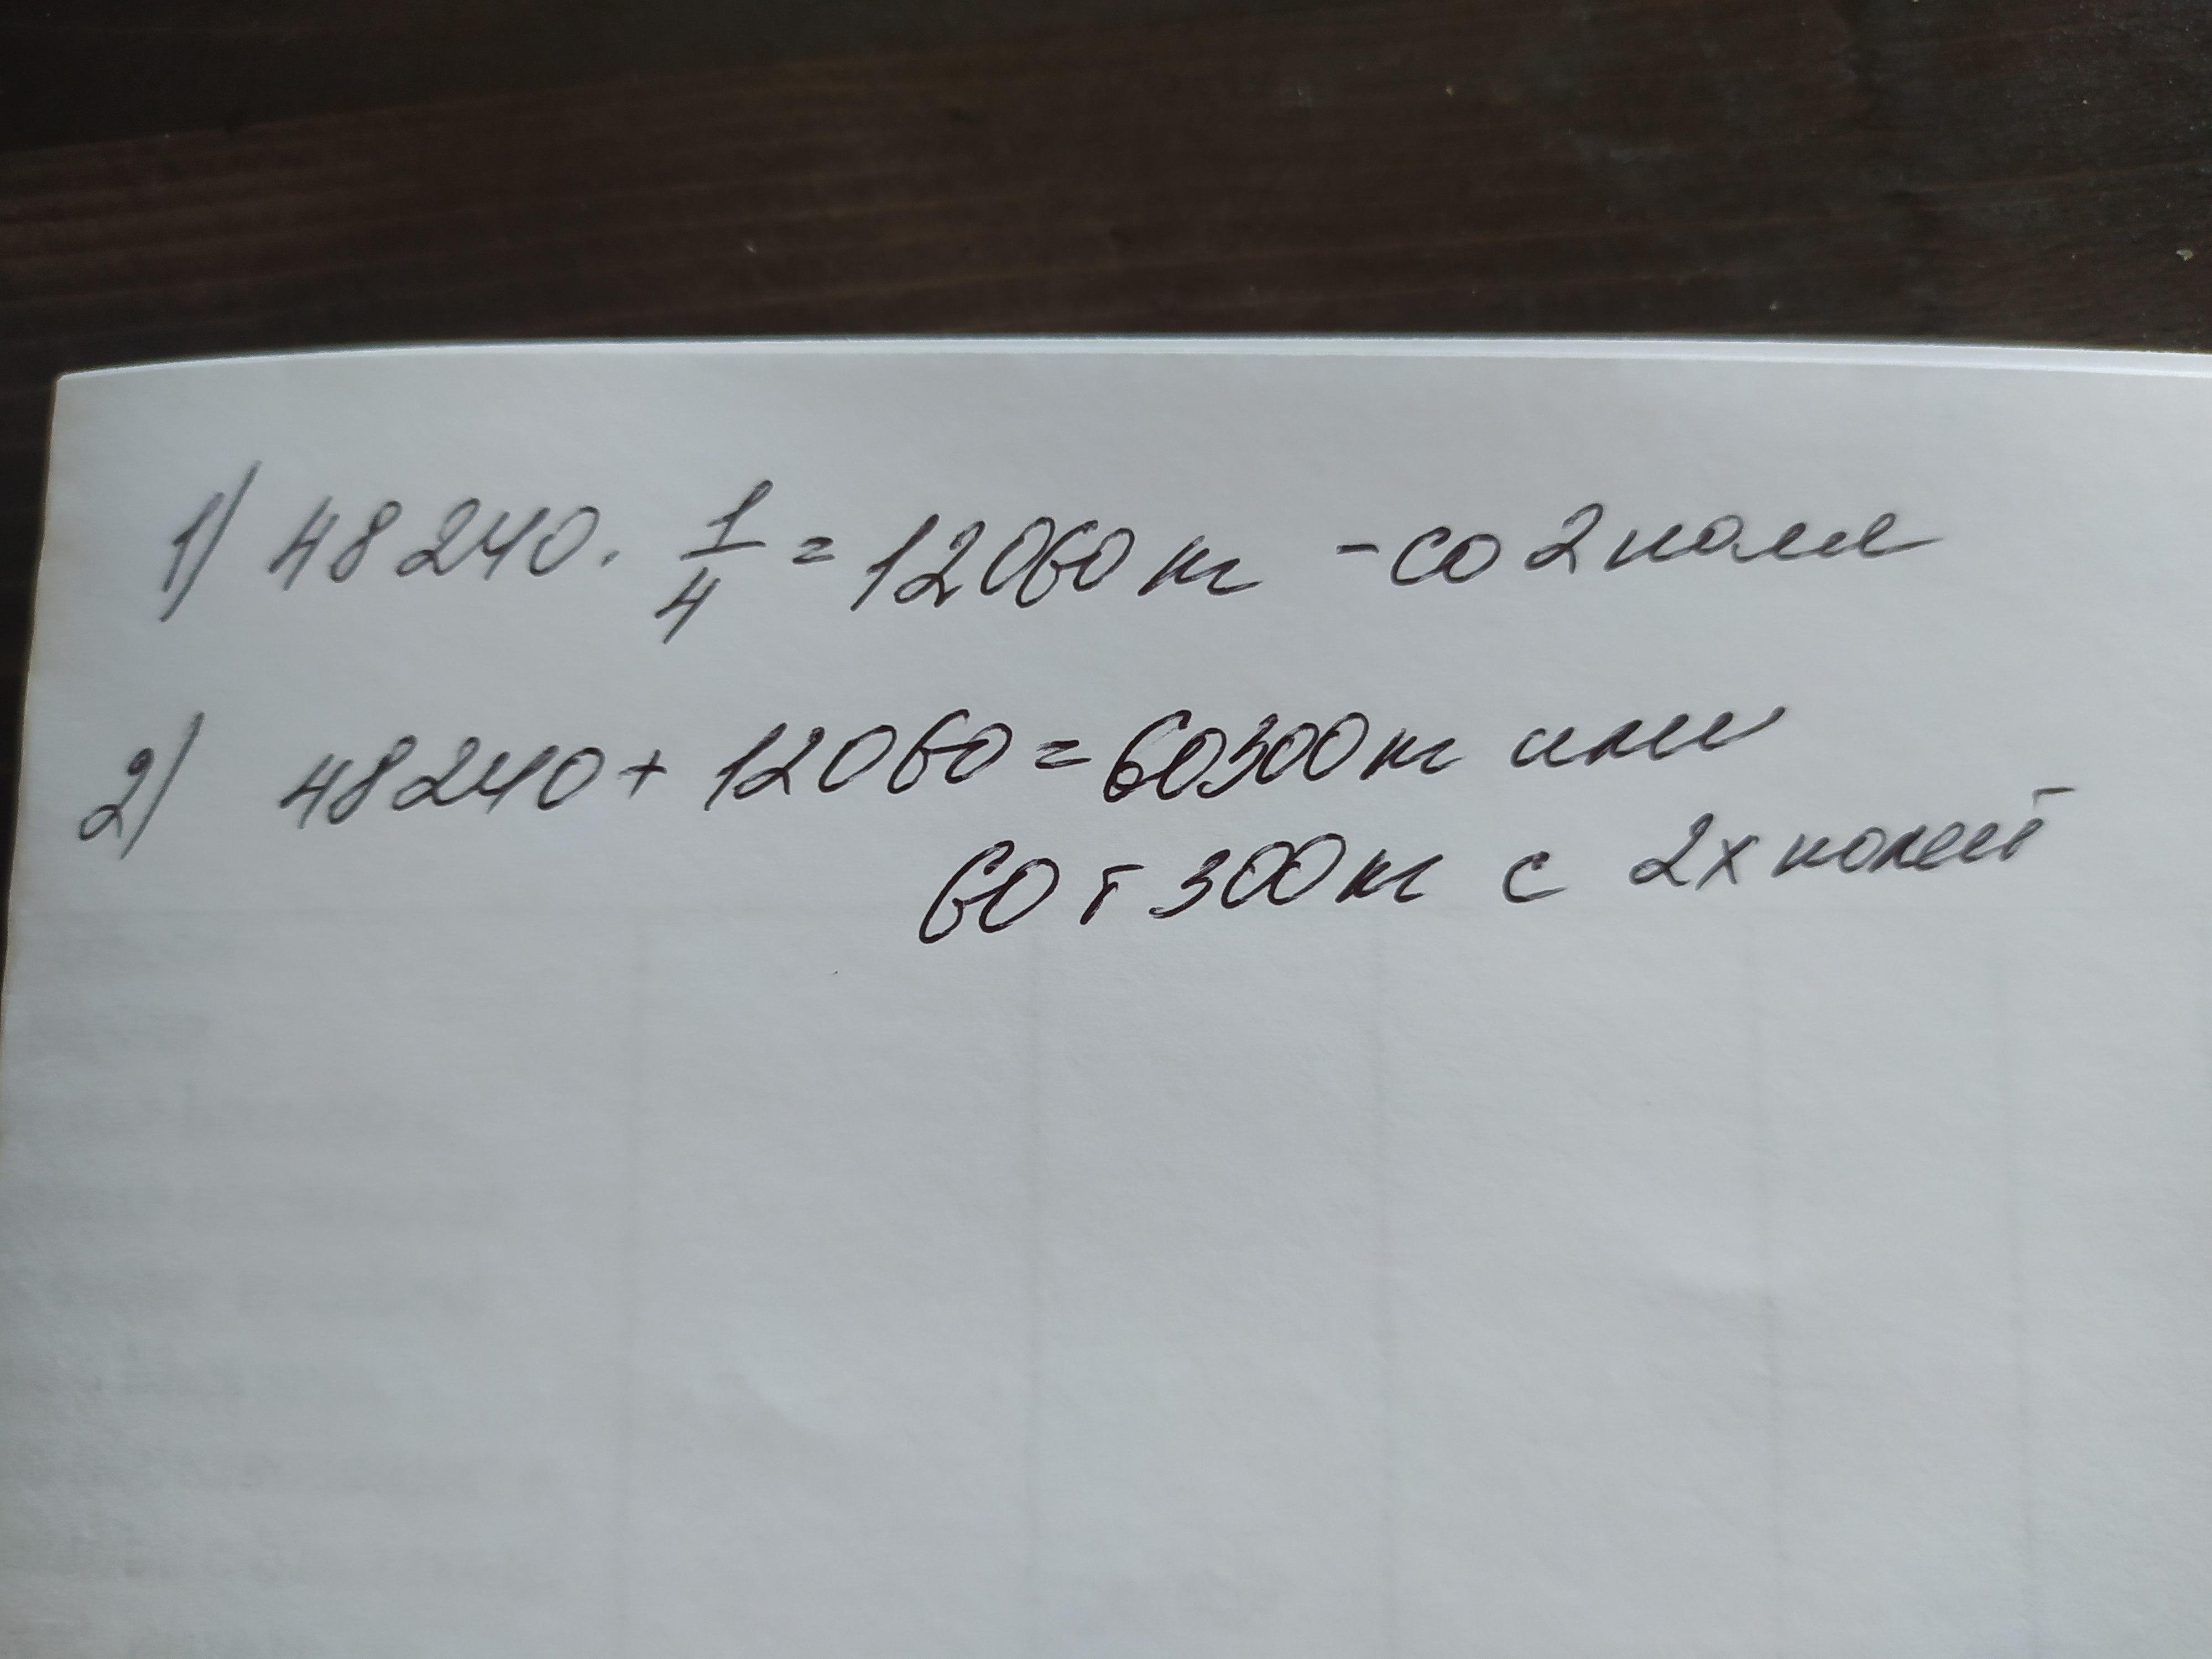 1) 48240 · 1/4 = 12060 кг - со 2 поля
2) 48240 + 12060 = 60300 кг или
60 т 300 кг с 2х полей